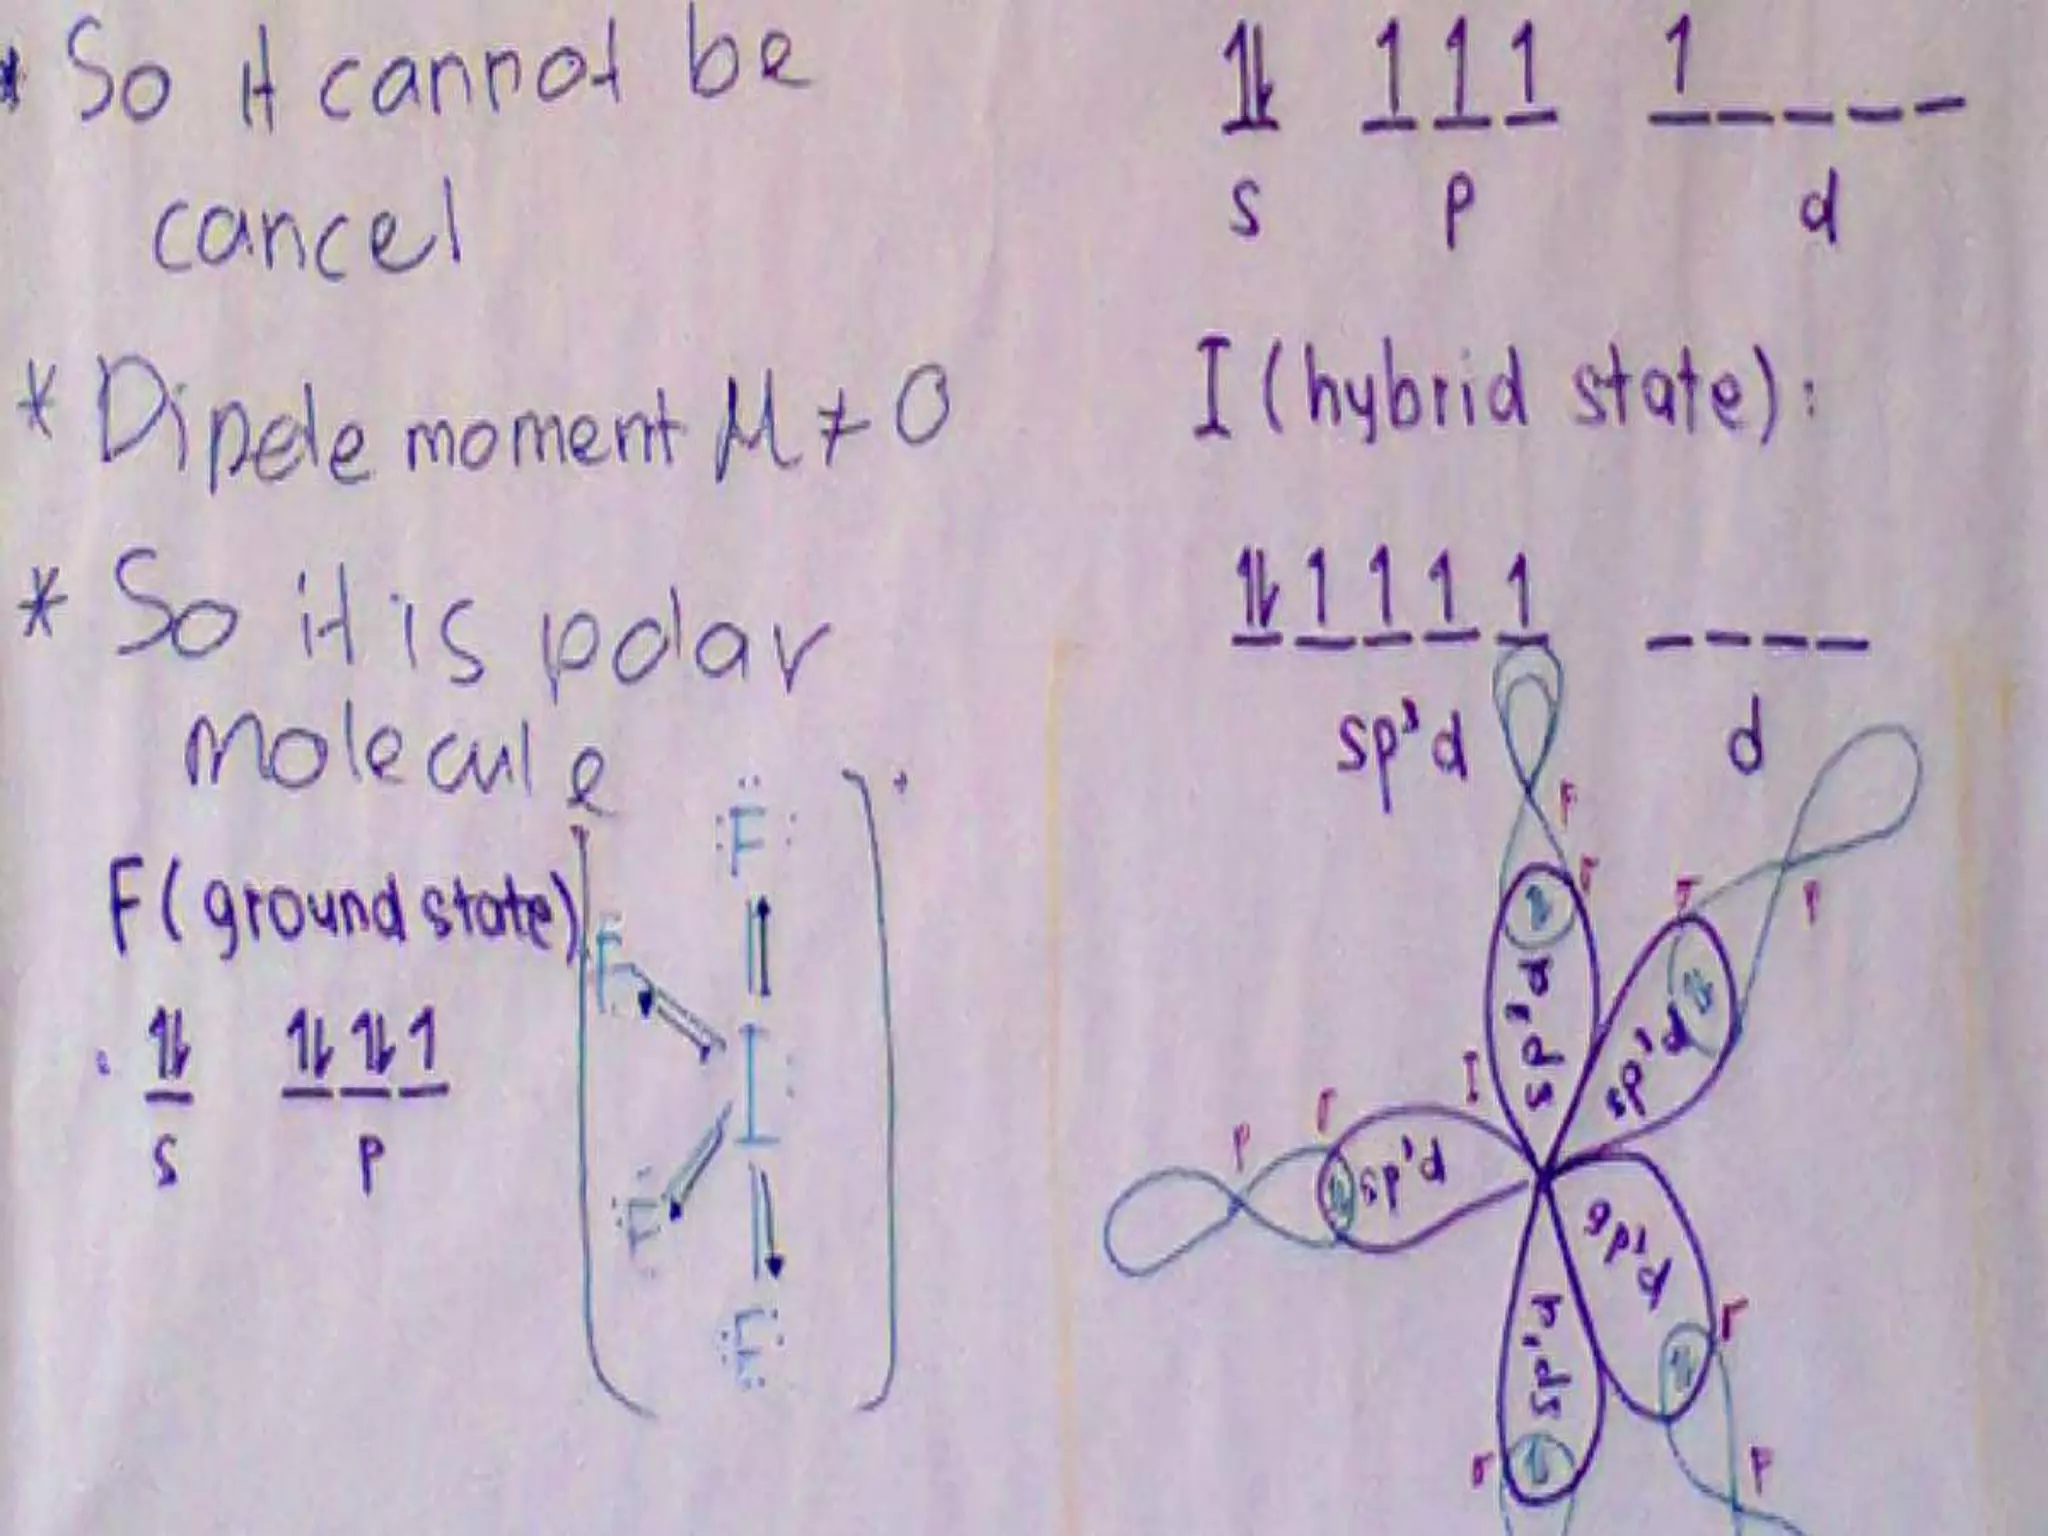 * So it cannot be
cancel
* Dipole moment M ≠ 0
* So it is polar
molecule
F (ground state)
⇅ ⇅ ⇅ 1
s p
F
F
I
F
F
+
⇅ 1 1 1 1
s p d
I (hybrid state):
⇅ 1 1 1 1
sp³d d
F
σ
sp³d
σ
F
sp³d
I
σ
F
sp³d
sp³d
σ
F
sp³d
σ